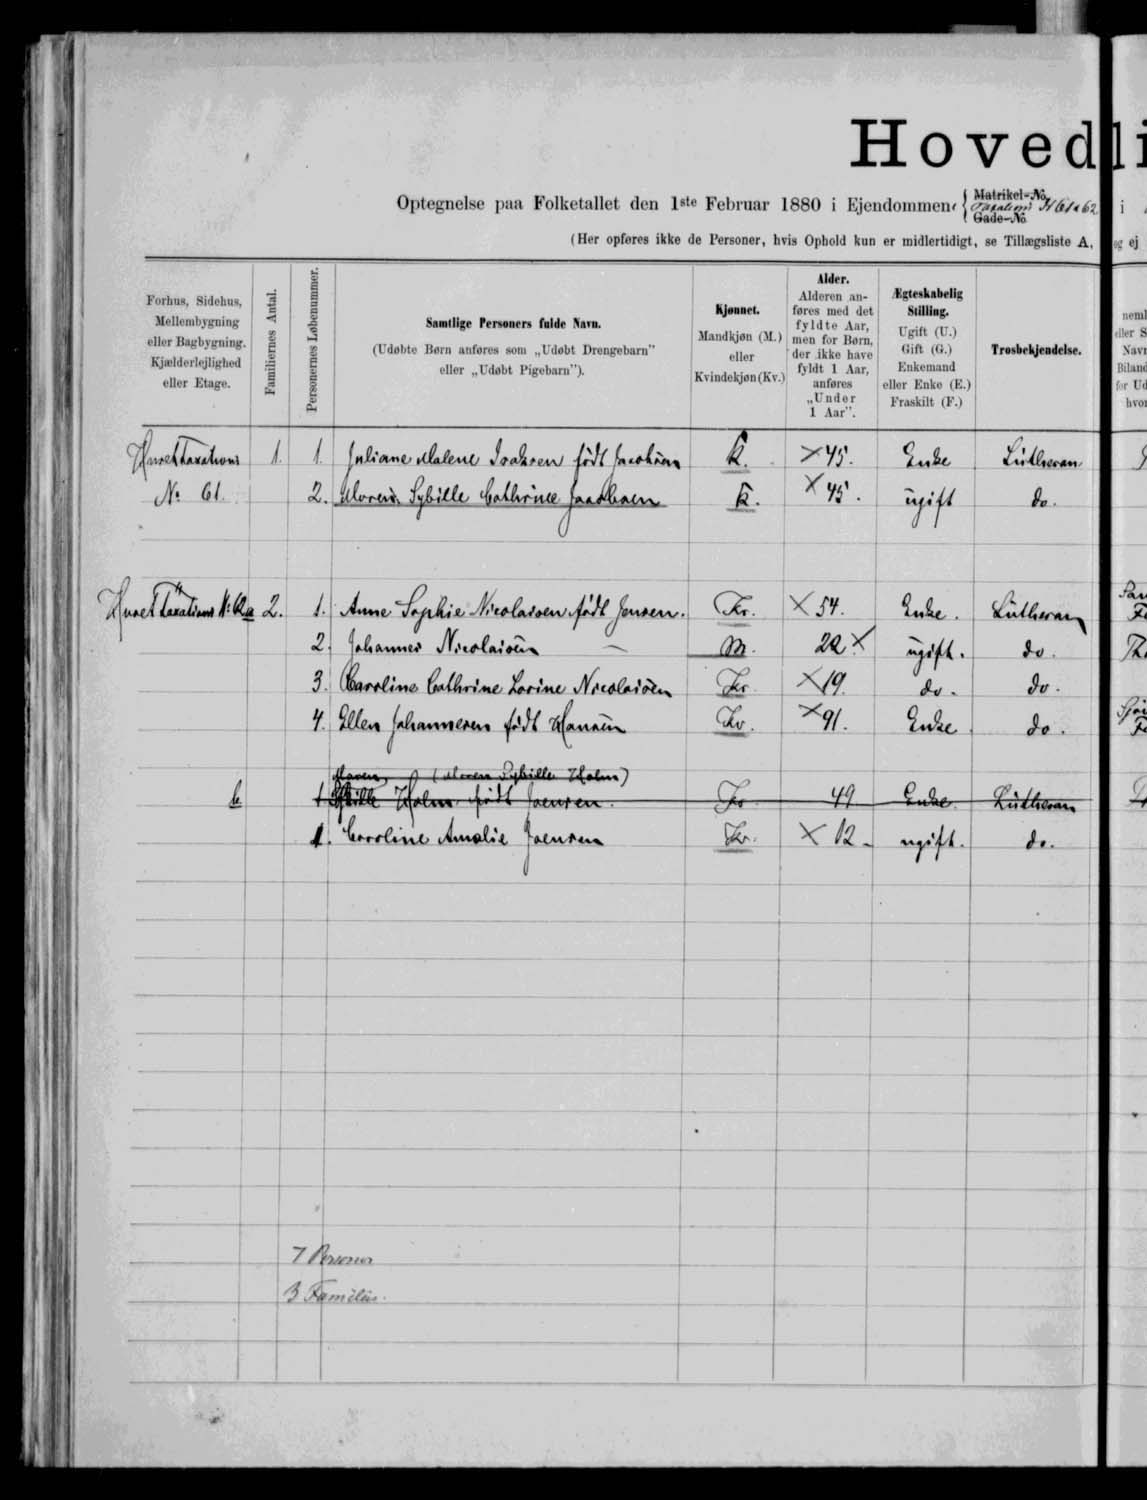 Hovedli
Optegnelse paa Folketallet den 1ste Februar 1880 i Ejendommene { Matrikel-No. Taxations No 61 & 62 Gade-No. i
(Her opføres ikke de Personer, hvis Ophold kun er midlertidigt, se Tillægsliste A, og ej
Forhus, Sidehus, Mellembygning eller Bagbygning. Kjælderlejlighed eller Etage.
Familiernes Antal.
Personernes Løbenummer.
Samtlige Personers fulde Navn.
(Udøbte Børn anføres som „Udøbt Drengebarn”
eller „Udøbt Pigebarn”).
Kjønnet.
Mandkjøn (M.)
eller
Kvindekjøn (Kv.)
Alder.
Alderen an-
føres med det
fyldte Aar,
men for Børn,
der ikke have
fyldt 1 Aar,
anføres
„Under
1 Aar”.
Ægteskabelig
Stilling.
Ugift (U.)
Gift (G.)
Enkemand
eller Enke (E.)
Fraskilt (F.)
Trosbekjendelse.
Huset Taxations 1. 1. Juliane Malene Isaksen født Jacobsen K. × 45. Enke Lutheran
No 61. 2. Maren Sybille Cathrine Jacobsen K. × 45. ugift do.
Huset Taxations No 62 a 2. 1. Anne Sophie Nicolaisen født Jensen. Kv. × 54. Enke. Lutheran
2. Johannes Nicolaisen — M. 22 × ugift. do.
3. Caroline Cathrine Lovine Nicolaisen Kv. × 19. do. do.
4. Ellen Johannesen født Hansen Kv. × 91. Enke do.
Maren, (Maren Sybille Holm)
b 1. Sybille Holm født Joensen. Kv 49 Enke. Lutheran
1. Caroline Amalie Joensen Kv. × 12. ugift. do.
7 Personer
3 Familier.